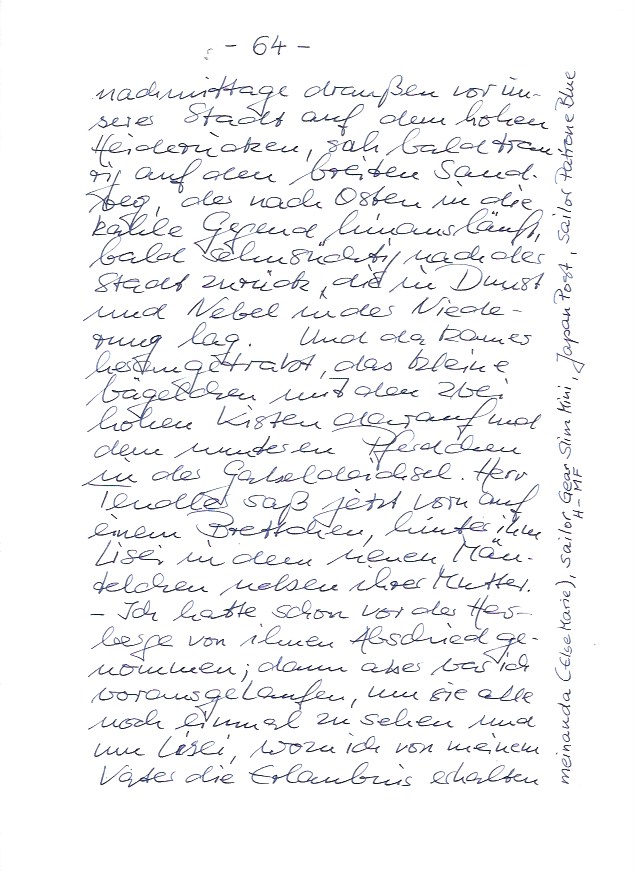 - 64 -
nachmittage draußen vor un-
seres Stadt auf dem hohen
Heiderücken, sah bald trau-
rig auf den breiten Sand-
weg, der nach Osten in die
kahle Gegend hinausläuft,
bald sehnsüchtig nach der
Stadt zurück, die in Dunst
und Nebel in der Niede-
rung lag. Und da kam es
herangetrabt, das kleine
Wägelchen mit den zwei
hohen Kisten darauf und
dem munteren Pferdchen
in der Gabeldeichsel. Herr
Tendler saß jetzt vorn auf
einem Brettchen, hinter ihm
Lisei in dem neuen Män-
telchen neben ihrer Mutter.
– Ich hatte schon vor der Her-
berge von ihnen Abschied ge-
nommen; dann aber war ich
vorausgelaufen, um sie alle
noch einmal zu sehen und
um Lisei, wozu ich von meinem
Vater die Erlaubnis erhalten
meinanda (Else Marie), Sailor Gear Slim Mini, Japan Post, Sailor Patrone Blue
H-MF